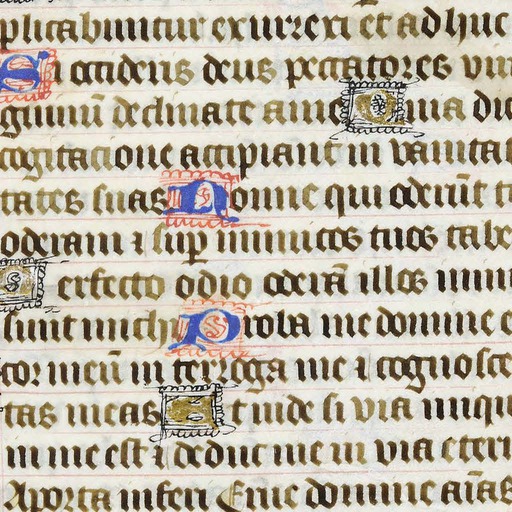 plicabuntur exurrexi et adhuc
Si occideris deus peccatores viri
guinū declinate a me Quia dic
cogitacione accipiant in vanitat
tates suas Nonne qui oderūt t
oderam ⁊ sup inimicos tuos tabe
Perfecto odio oderā illos inimi
sunt michi Proba me domine e
cor meū in terroga me ⁊ cognosce
tas meas Et uide si via iniqui
in me est ⁊ deduc me in via etern
A porta inferi Erue domine aīas